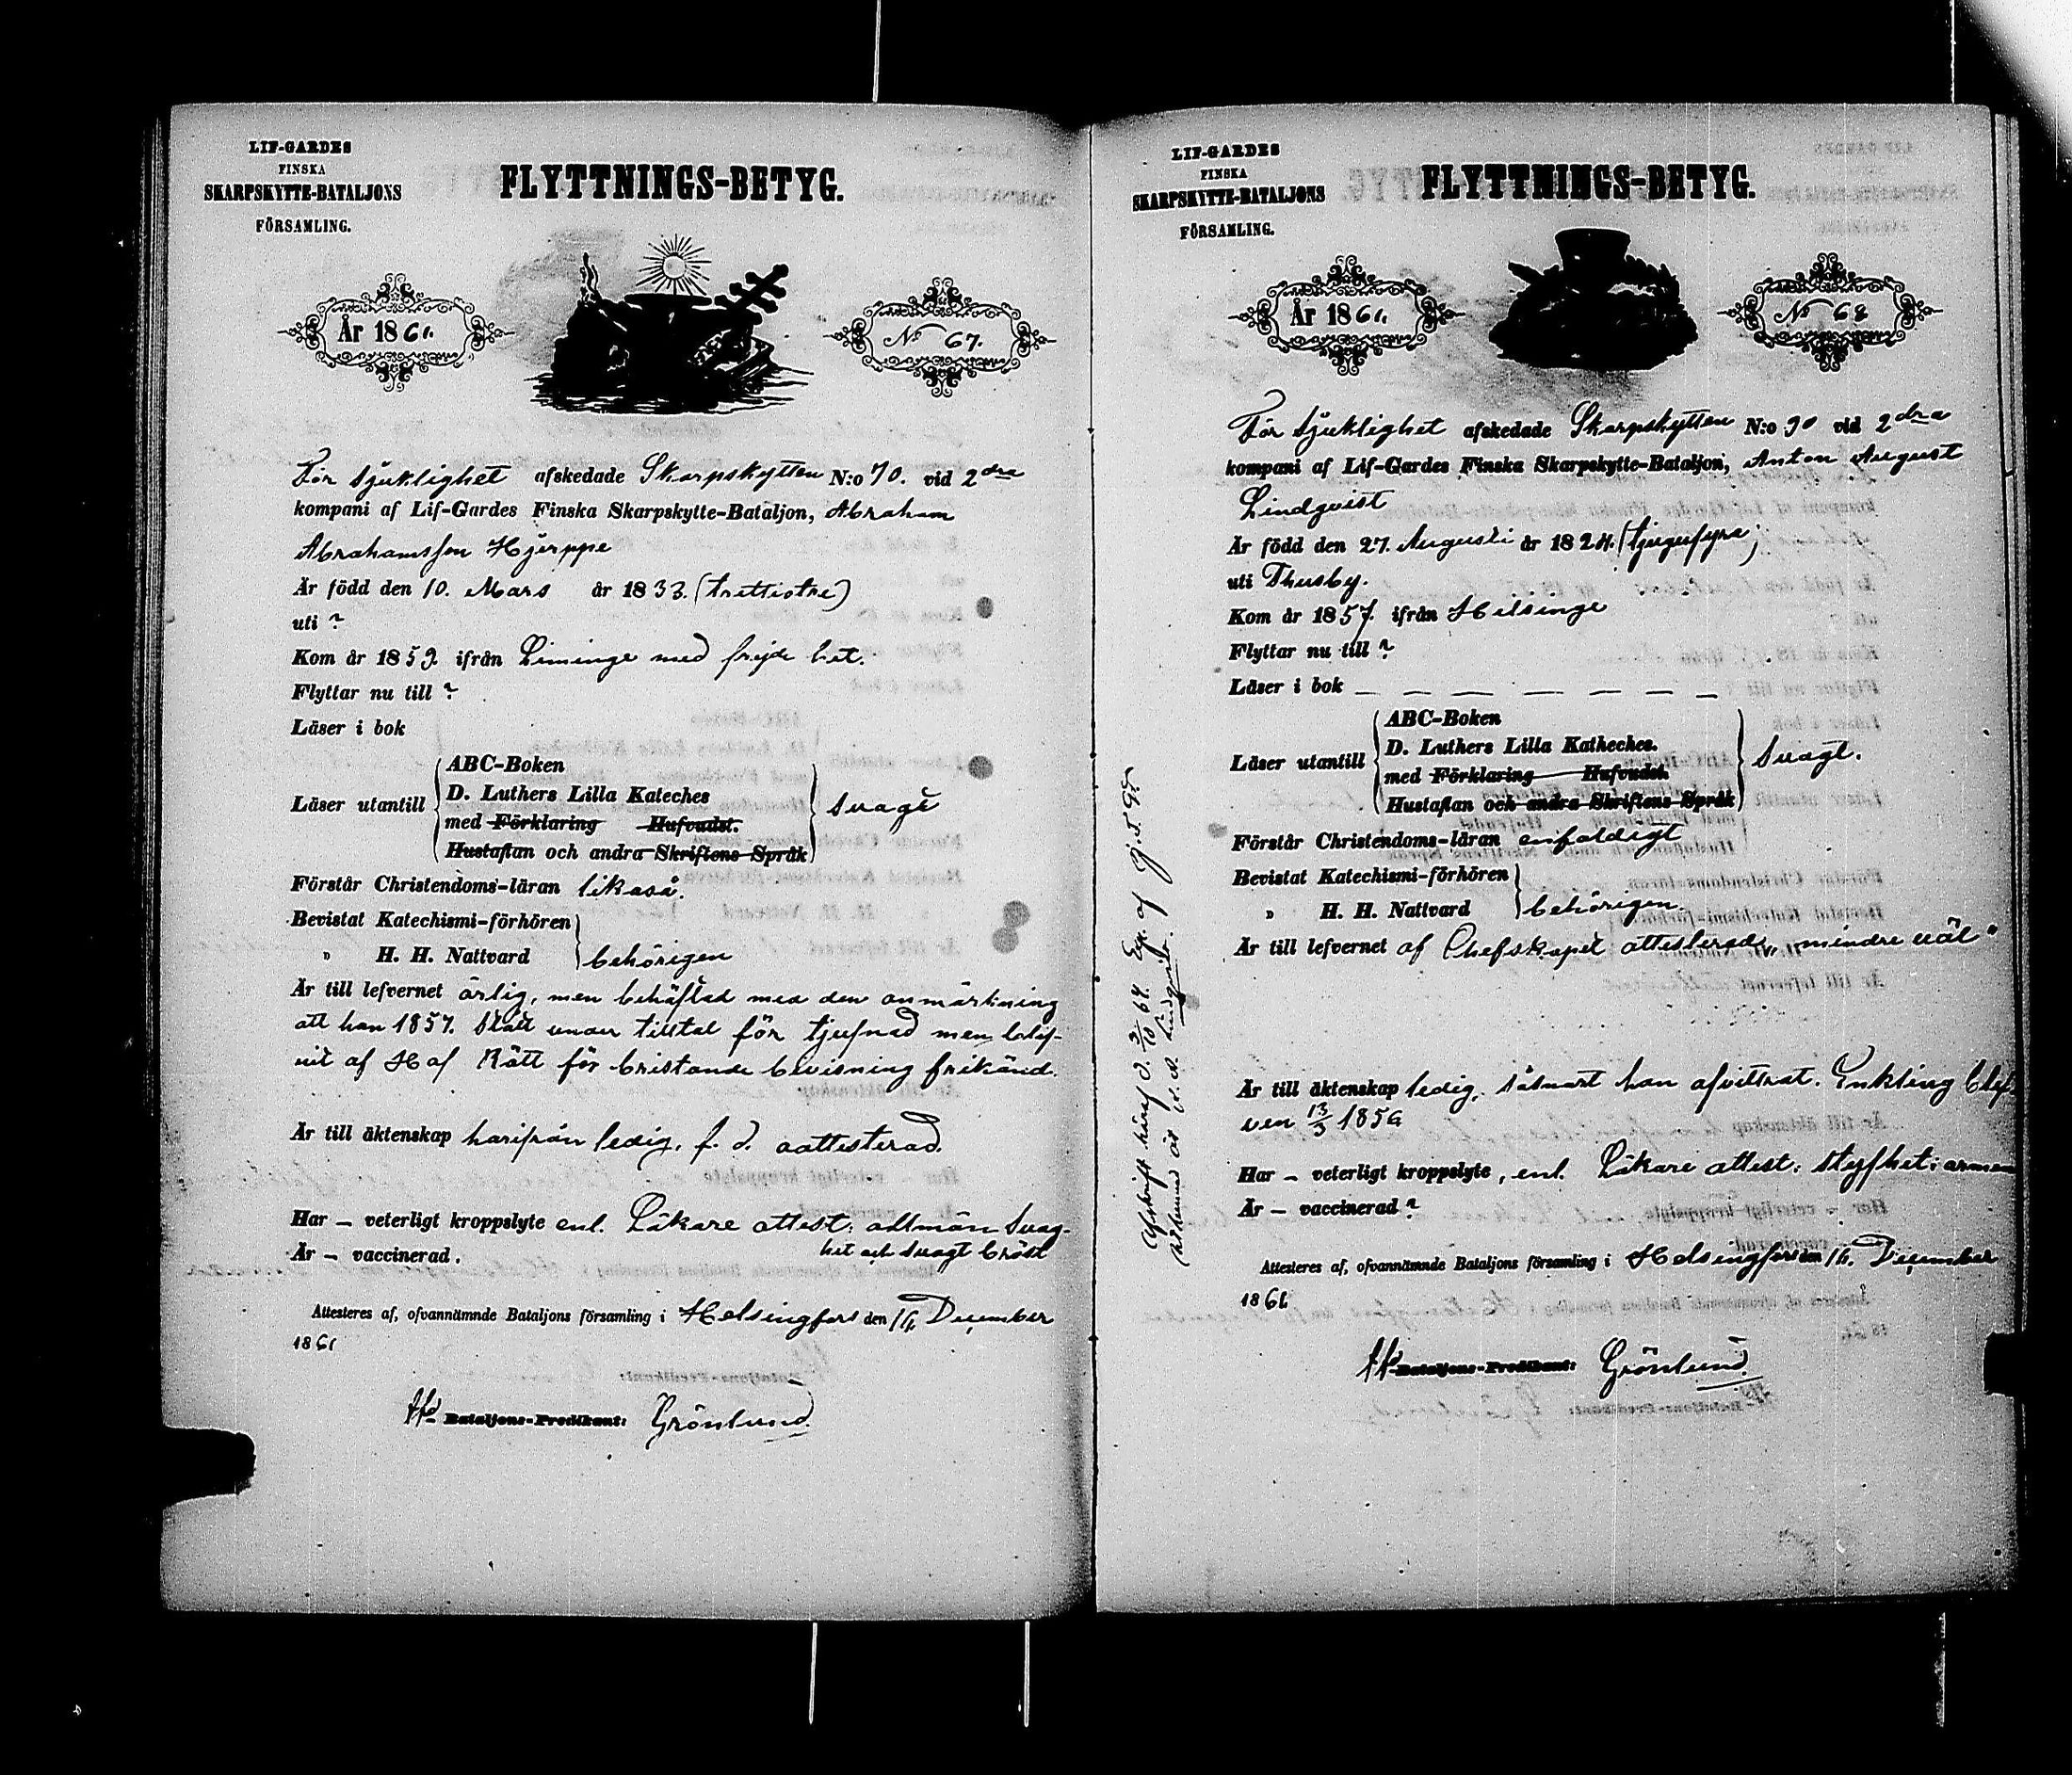 LIF-GARDES
FINSKA
SKARPSKYTTE-BATALJONS
FÖRSAMLING.
FLYTTNINGS-BETYG.
År 1861.
No 67.
För sjuklighet afskedade Skarpskytten N:o 70. vid 2dra
kompani af Lif-Gardes Finska Skarpskytte-Bataljon, Abraham
Abrahamsson Hjerppe
Är född den 10. Mars år 1833. (trettiotre)
uti ?
Kom år 1859. ifrån Liminge med frejde bet.
Flyttar nu till ?
Läser i bok
Läser utantill
ABC-Boken
D. Luthers Lilla Kateches
med Förklaring Hufvudst.
Hustaflan och andra Skriftens Språk
svagt
Förstår Christendoms-läran likaså.
Bevistat Katechismi-förhören
" H. H. Nattvard
behörigen
Är till lefvernet ärlig, men behäftad med den anmärkning
att han 1857. stått under tilltal för tjufnad men blif-
vit af H af Rätt för bristande bevisning frikänd.
Är till äktenskap härifrån ledig, f. d. oattesterad.
Har – veterligt kroppslyte enl. Läkare attest: allmän svag-
het och svagt bröst
Är – vaccinerad.
Attesteras af, ofvannämnde Bataljons församling i Helsingfors den 14. December
1861
Bataljons-Predikant: Grönlund.
LIF-GARDES
FINSKA
SKARPSKYTTE-BATALJONS
FÖRSAMLING.
FLYTTNINGS-BETYG.
År 1861.
No 68
För sjuklighet afskedade Skarpskytten N:o 90 vid 2dra
kompani af Lif-Gardes Finska Skarpskytte-Bataljon, Anton August
Lindqvist
Är född den 27. Augusti år 1824. (tjugufyra)
uti Thusby.
Kom år 1857. ifrån Helsinge
Flyttar nu till ?
Läser i bok – – – – – – –
Läser utantill
ABC-Boken
D. Luthers Lilla Katheches.
med Förklaring Hufvudst.
Hustaflan och andra Skriftens Språk
svagt.
Förstår Christendoms-läran enfaldigt
Bevistat Katechismi-förhören
" H. H. Nattvard
behörigen.
Är till lefvernet af Chefskapet attesterad „mindre väl"
Är till äktenskap ledig, såsnart han afvittrat. Enkling blif-
ven 13/3 1856
Har – veterligt kroppslyte, enl. Läkare attest: styfhet i armen
Är – vaccinerad ?
Attesteras af, ofvannämnde Bataljons församling i Helsingfors den 16. December
1861
Bataljons-Predikant: Grönlund.